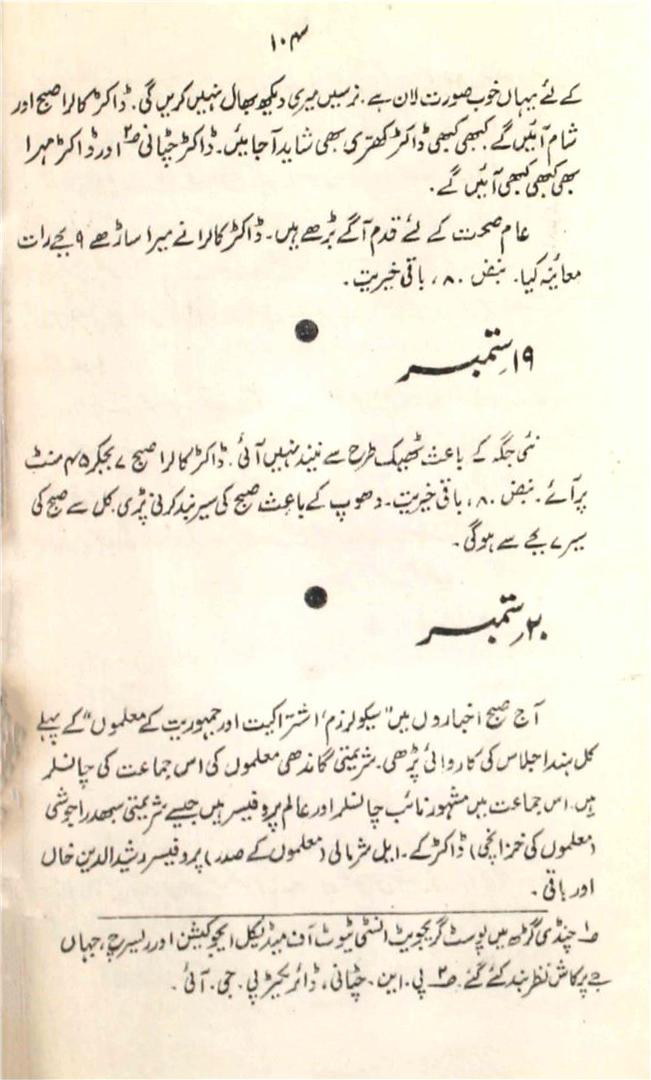 ۱۰۴
کے لئے یہاں خوب صورت لان ہے۔ نرسیں میری دیکھ بھال نہیں کریں گی۔ ڈاکٹر کالرا صبح اور
شام آئیں گے کبھی کبھی ڈاکٹر کھتری بھی شاید آ جائیں۔ ڈاکٹر چٹانی ۲؎ اور ڈاکٹر مہرا
بھی کبھی کبھی آئیں گے۔
عام صحت کے لئے قدم آگے بڑھے ہیں۔ ڈاکٹر کالرا نے میرا ساڑھے ۹ بجے رات
معائنہ کیا۔ نبض ۸۰، باقی خیریت۔
۱۹ ستمبر
نئی جگہ کے باعث ٹھیک طرح سے نیند نہیں آئی۔ ڈاکٹر کالرا صبح ۷ بجکر ۴۵ منٹ
پر آئے۔ نبض ۸۰، باقی خیریت۔ دھوپ کے باعث صبح کی سیر بند کرنی پڑی۔ کل سے صبح کی
سیر ۷ بجے سے ہوگی۔
۲۰ ستمبر
آج صبح اخباروں میں "سیکولرزم، اشتراکیت اور جمہوریت کے معلموں" کے پہلے
کل ہند اجلاس کی کاروائی پڑھی۔ شریمتی گاندھی معلموں کی اس جماعت کی چانسلر
ہیں۔ اس جماعت میں مشہور نائب چانسلر اور عالم پروفیسر ہیں جیسے شریمتی سبھدرا جوشی
(معلموں کی خزانچی) ڈاکٹر کے۔ ایل شرمالی (معلموں کے صدر) پروفیسر رشید الدین خاں
اور باقی۔
۱؎ چنڈی گڑھ میں پوسٹ گریجویٹ انسٹی ٹیوٹ آف میڈیکل ایجوکیشن اور ریسرچ، جہاں
جے پرکاش نظر بند کئے گئے۔ ۲؎ پی۔ این۔ چٹانی، ڈائریکٹر پی۔ جی۔ آئی۔